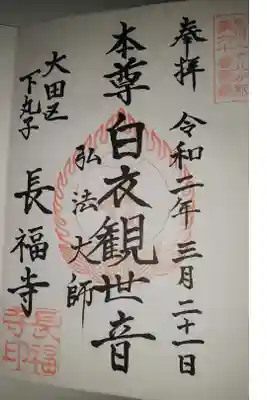 奉拝
令和二年三月二十一日
本尊白衣観世音
弘法大師
大田区
下丸子
長福寺
長福
寺印